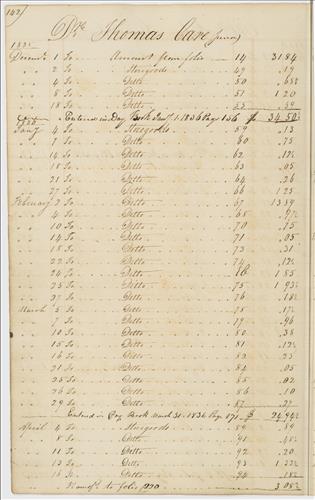 142/
Dr. Thomas Care (junior)
1835
Decemb. 1 To Amount from folio 14 31 84
" " 2 To " Stuegoods 49 .19
" " 8 To " Ditto 50 .68½
" " 8 To " Ditto 51 1 20
" " 18 To " Ditto 55 .59
1836 Entered in Day Book Jany. 1. 1836 Page 156 $ 34 50½
Jany 4 To " Stuegoods 59 .13
" " 7 To " Ditto 60 .75
" " 14 To " Ditto 62 .17½
" " To " Ditto 63 .05
" " 21 To " Ditto 64 .26
" " 27 To " Ditto 66 1 25
February 2 To " Ditto 67 13 39
" " 4 To " Ditto 68
" " 10 To " Ditto 70 .15
" " 14 To " Ditto 71 .05
" " 18 To " Ditto 73 .31
" " 22 To " Ditto 74 .12½
" " 24 To " Ditto 1 85
" " 25 To " Ditto 75 1 93½
" " 27 To " Ditto 76 .18½
March 5 To " Ditto 75 .17½
" " 7 To " Ditto 77 .96
" " 10 To " Ditto 80 .38
" " 15 To " Ditto 81 .12½
" " 16 To " Ditto 82 .23
" " 21 To " Ditto 84 .05
" " 25 To " Ditto 85 .02
" " 26 To " Ditto 86 .10
" " 29 To " Ditto 87
Entered in Day Book March 31. 1836 Page 171 $ 24 94½
April 4 To " Stuegoods 89 .89
" " 8 To " Ditto 91 .48½
" " 11 To " Ditto 92 .20
" " 13 To " Ditto 93 1 32½
" " 14 To " Ditto 94 .18½
" " Amot. to folio 220 3 08½